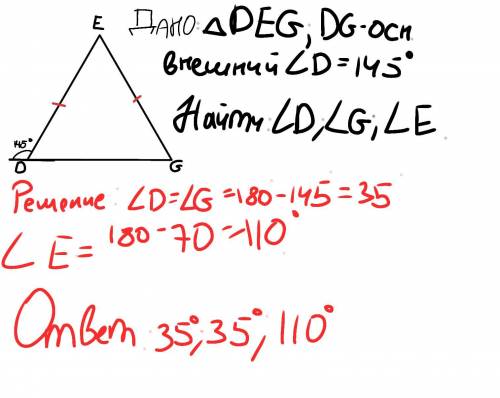 E
Дано: △DEG, DG-осн
внешний ∠D = 145°
Найти ∠D, ∠G, ∠E
145°
D G
Решение: ∠D=∠G=180-145=35
∠E= 180-70=110°
Ответ 35°, 35°, 110°